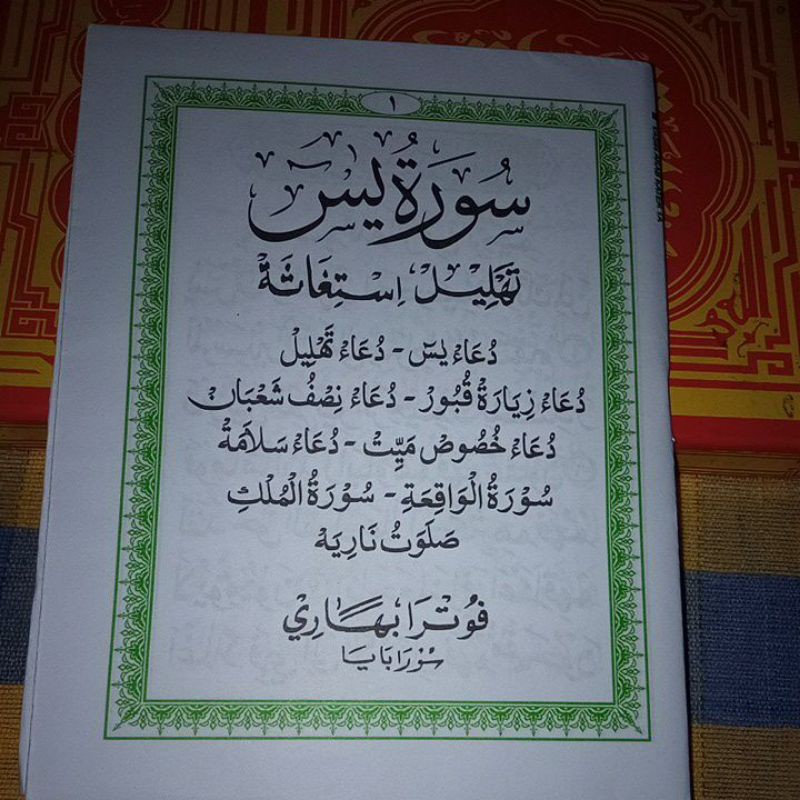 ١
سُوْرَةُ يٰسٓ
تَهْلِيْل اِسْتِغَاثَةْ
دُعَاءْ يٰسٓ - دُعَاءْ تَهْلِيْل
دُعَاءْ زِيَارَةْ قُبُوْر - دُعَاءْ نِصْفُ شَعْبَانْ
دُعَاءْ خُصُوْصْ مَيِّتْ - دُعَاءْ سَلَامَةْ
سُوْرَةُ الْوَاقِعَةِ - سُوْرَةُ الْمُلْكِ
صَلَوَتُ نَارِيَهْ
فُوْتْرَا بِهَارِيْ
سُوْرَابَايَا